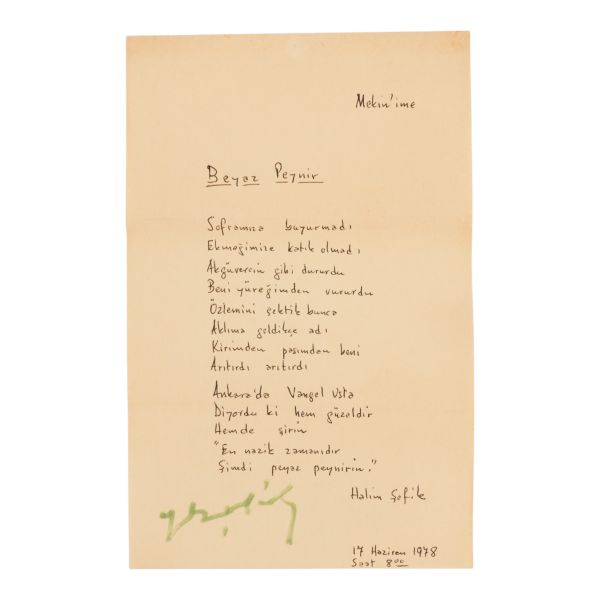 Mekin'ime
Beyaz Peynir
Soframıza buyurmadı
Ekmeğimize katık olmadı
Akgüvercin gibi dururdu
Beni yüreğimden vururdu
Özlemini çektik bunca
Aklıma geldikçe adı
Kirimden pasımdan beni
Arıtırdı arıtırdı
Ankara'da Vangel Usta
Diyordu ki hem güzeldir
Hemde şirin
"En nazik zamanıdır
Şimdi peyaz peynirin."
Halim Şefik
17 Haziran 1978
Saat 8.00